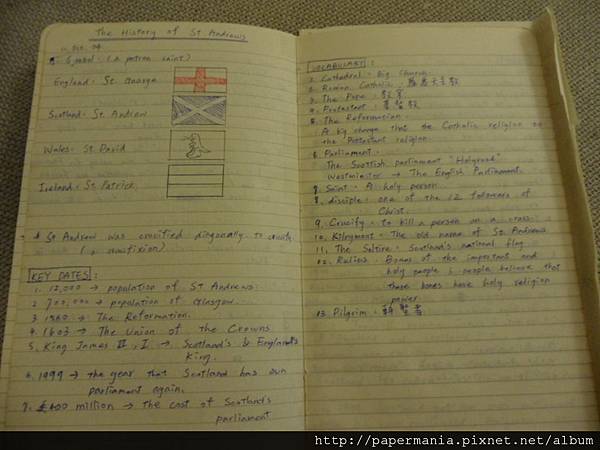 The History of St Andrews
Symbol : (a patron saint)
England : St. George
Scotland : St. Andrew
Wales : St David
Ireland : St Patrick
St Andrew was crucified diagonally to crucify.
crucifixion)
KEY DATES :
1. 12,000 → population of St Andrews
2. 700,000 → population of Glasgow.
3. 1560 → The Reformation.
4. 1603 → The Union of the Crowns
5. King James VI , I → Scotland's & England's
King.
6. 1999 → the year that Scotland has own
parliament again.
7. £400 million → the cost of Scotland's
parliament
VOCABULARY :
1. Cathedral : Big Church.
2. Roman Catholic : 羅馬天主教
3. The Pope : 教宗
4. Protestant : 基督教
5. The Reformation :
A big change that the Catholic religion to
the Protestant religion.
6. Parliament :
The Scottish parliament "Holyrood"
Westminster → The English Parliament.
7. Saint : A holy person
8. disciple : one of the 12 followers of
Christ.
9. Crucify : to kill a person on a cross.
10. Kilrymont : The old name of St. Andrews
11. The Saltire : Scotland's national flag
12. Relics : Bones of the important and
holy people & people believe that
these bones have holy religion
power.
13. Pilgrim : 朝聖者
http://papermania.pixnet.net/album